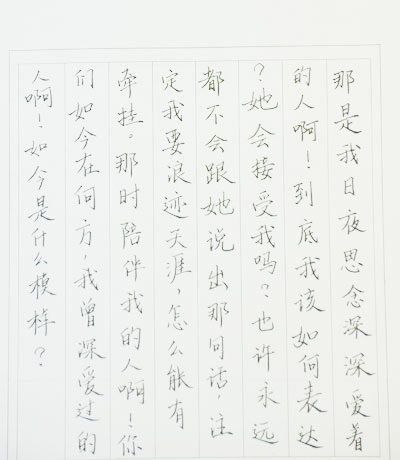 那是我日夜思念深深爱着
的人啊！到底我该如何表达
？她会接受我吗？也许永远
都不会跟她说出那句话，注
定我要浪迹天涯，怎么能有
牵挂。那时陪伴我的人啊！你
们如今在何方，我曾深爱过的
人啊！如今是什么模样？